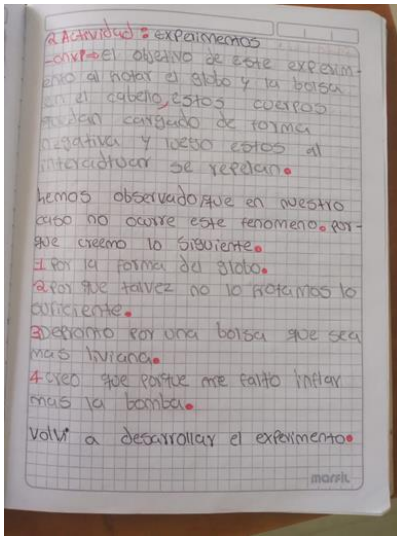 2 Actividad: experimentos
conxp→el objetivo de este experim-
ento al frotar el globo y la bolsa
en el cabello, estos cuerpos
quedan cargado de forma
negativa y luego estos al
interactuar se repelan.
hemos observado que en nuestro
caso no ocurre este fenomeno. Por-
que creemo lo siguiente.
1 Por la forma del globo.
2 por que talvez no lo frotamos lo
suficiente.
3 por una bolsa que sea
mas liviana.
4 creo que porque me falto inflar
mas la bomba.
volvi a desarrollar el experimento.